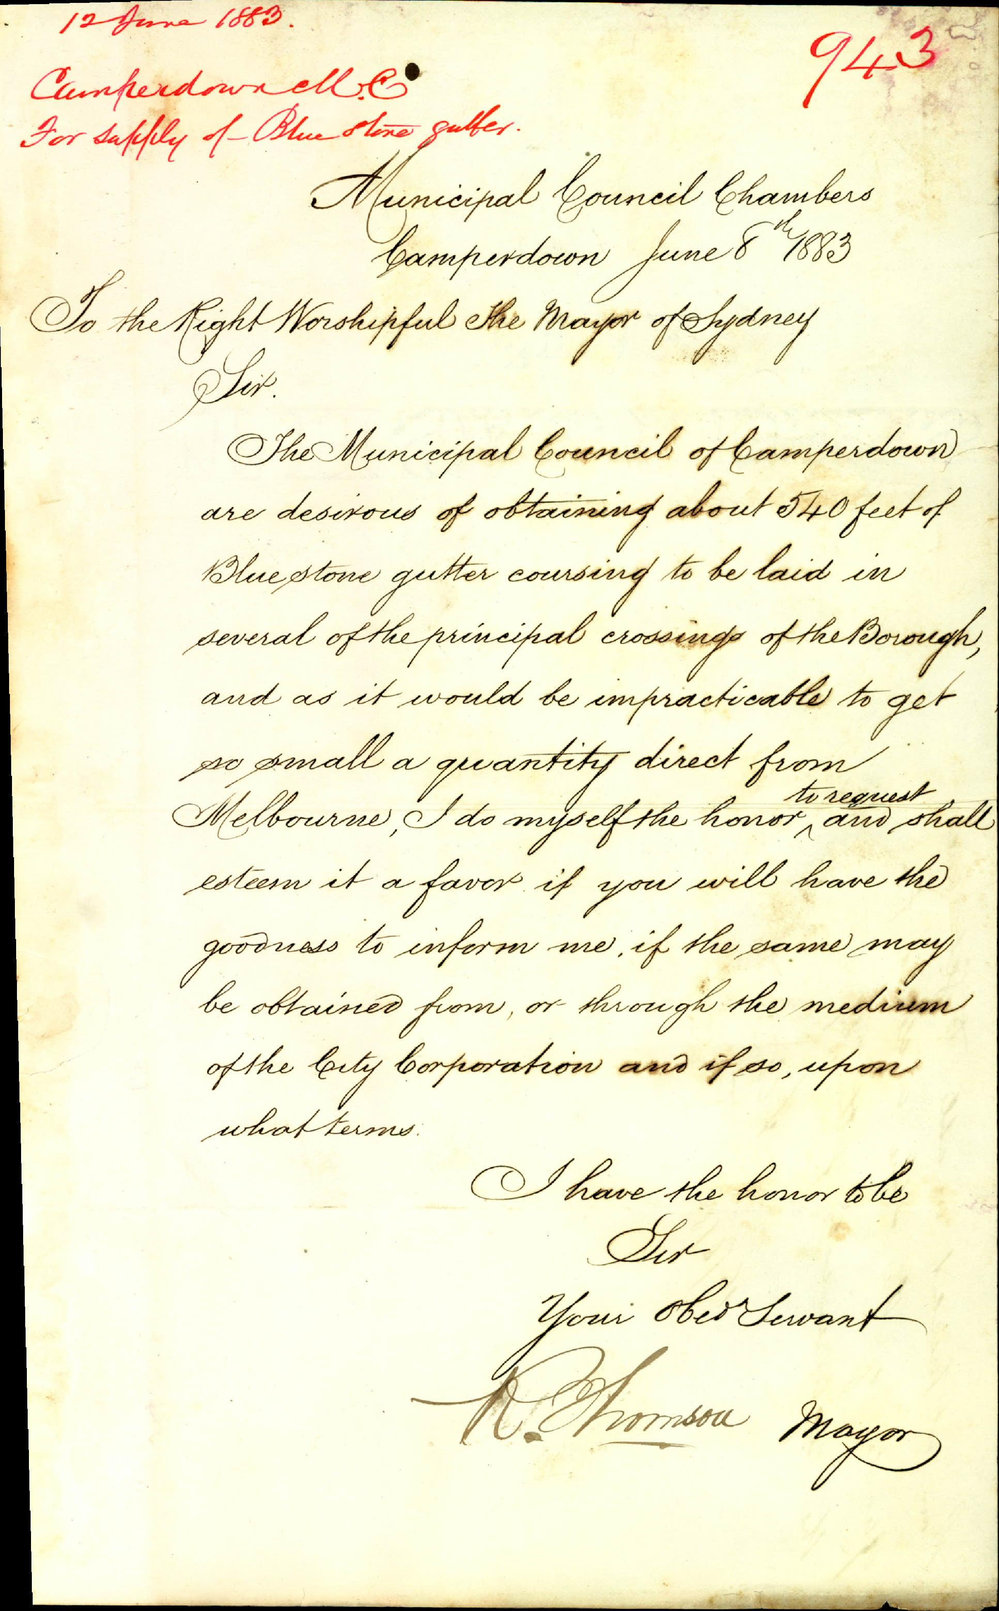 12 June 1883.
943
Camperdown M.C
For supply of Blue stone gutter.
Municipal Council Chambers
Camperdown June 8th 1883
To the Right Worshipful The Mayor of Sydney
Sir.
The Municipal Council of Camperdown
are desirous of obtaining about 540 feet of
Blue stone gutter coursing to be laid in
several of the principal crossings of the Borough,
and as it would be impracticable to get
so small a quantity direct from
to request
Melbourne, I do myself the honor ^ and shall
esteem it a favor if you will have the
goodness to inform me, if the same may
be obtained from, or through the medium
of the City Corporation and if so, upon
what terms.
I have the honor to be
Sir
Your Obed Servant
R. Thomson Mayor